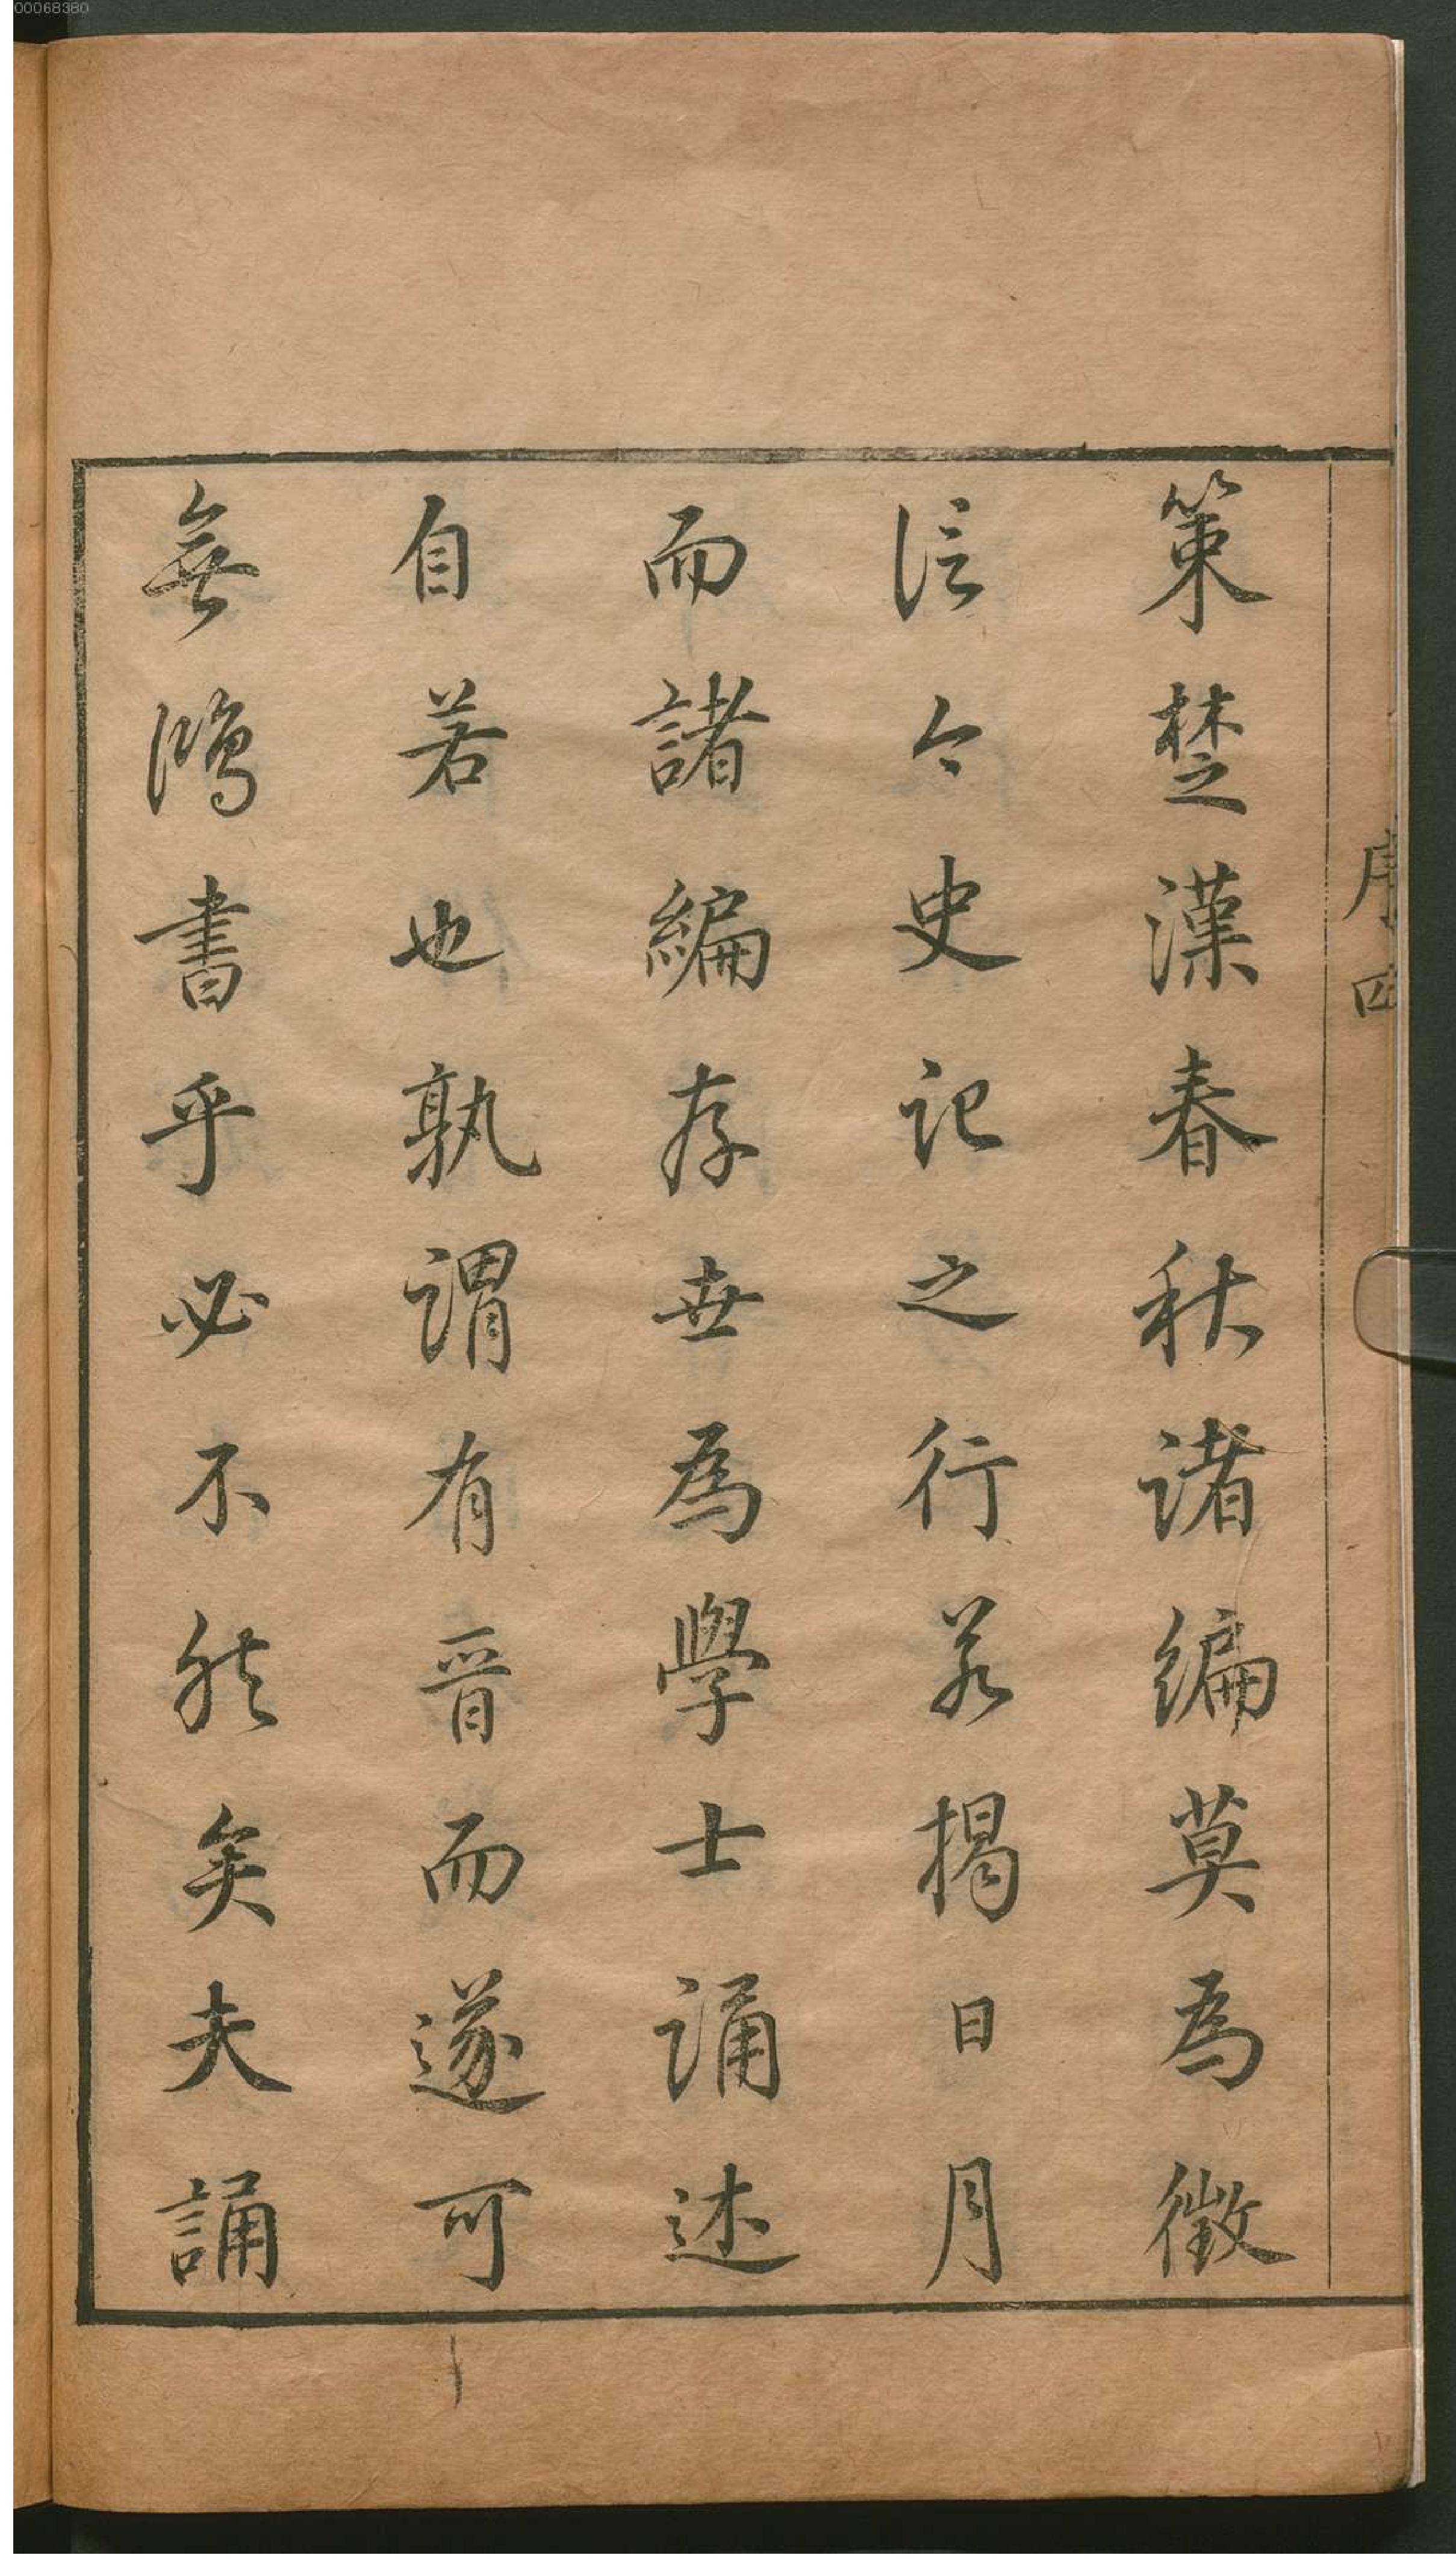 00068380
序 四
策楚漢春秋諸編莫爲徵
信今史記之行若揭日月
而諸編存世爲學士誦述
自若也孰謂有晉而遂可
無鴻書乎必不然矣夫誦